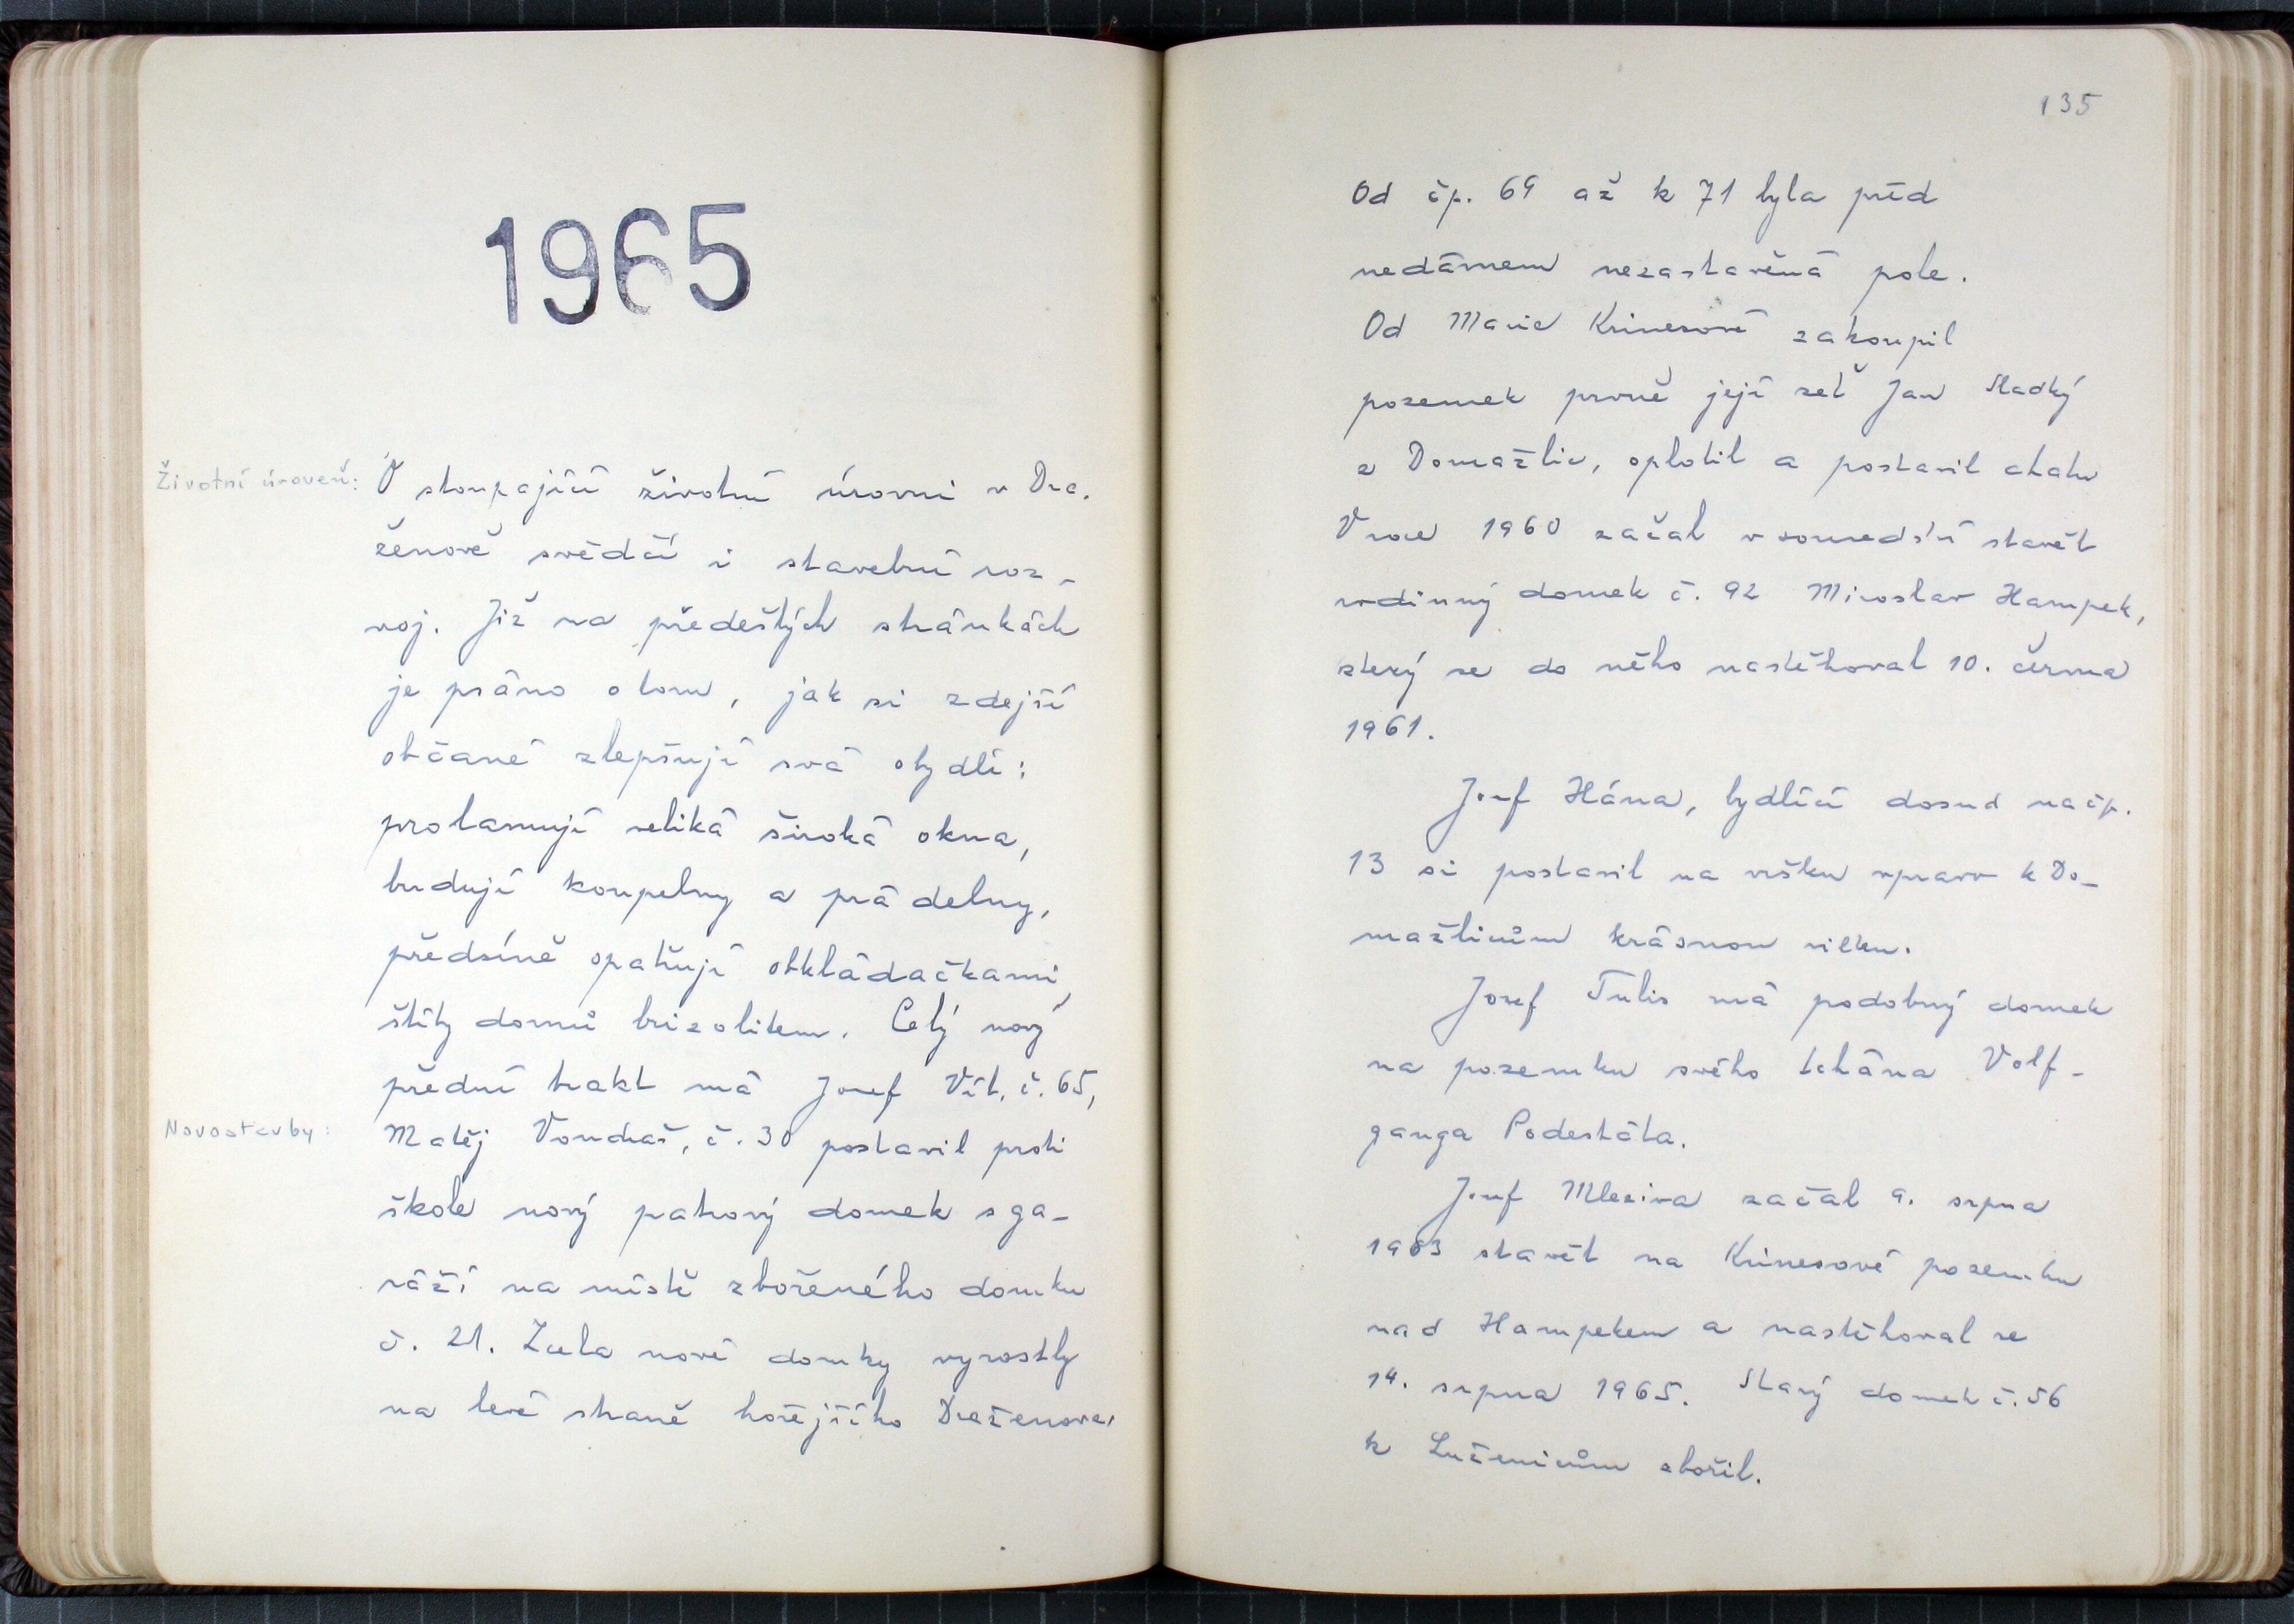 1965
Životní úroveň:
O stoupající životní úrovni v Dra-
ženově svědčí i stavební roz-
voj. Již na předešlých stránkách
je psáno o tom, jak si zdejší
občané zlepšují svá obydlí:
prolamují veliká široká okna,
budují koupelny a prádelny,
předsíně opatřují obkládačkami,
štíty domů brizolitem. Celý nový
přední trakt má Josef Vít, č. 65,
Novostavby:
Matěj Vondraš, č. 30 postavil proti
škole nový patrový domek s ga-
ráží na místě zbořeného domku
č. 21. Zcela nové domky vyrostly
na levé straně hořejšího Draženova.
135
Od čp. 69 až k 71 byla před
nedávnem nezastavěná pole.
Od Marie Krinesové zakoupil
pozemek prvně její zeť Jan Sladký
z Domažlic, oplotil a postavil chatu
V roce 1960 začal v sousedství stavět
rodinný domek č. 92 Miroslav Hampek,
který se do něho nastěhoval 10. června
1961.
Josef Hána, bydlící dosud na čp.
13 si postavil na vršku vpravo k Do-
mažlicům krásnou vilku.
Josef Tulis má podobný domek
na pozemku svého tchána Volf-
ganga Podestáta.
Josef Mleziva začal 9. srpna
1963 stavět na Krinesové pozemku
nad Hampekem a nastěhoval se
14. srpna 1965. Starý domek č. 56
k Luženicům zbořil.